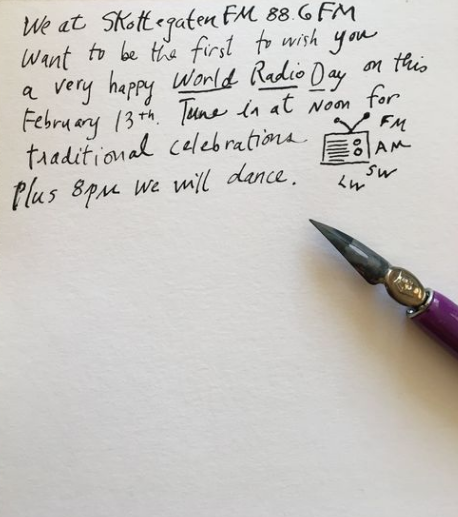 We at Skottegaten FM 88.6 FM
Want to be the first to wish you
a very happy World Radio Day on this
February 13th. Tune in at Noon for
traditional celebrations.
Plus 8pm we will dance.
FM
AM
SW
LW